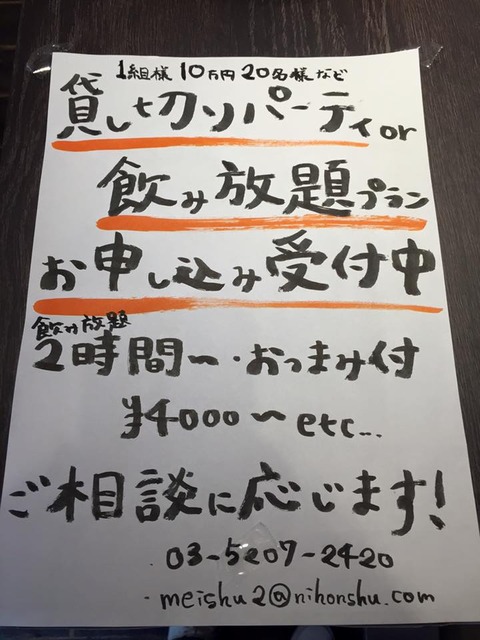 1組様 10万円 20名様など
貸し切りパーティ or
飲み放題プラン
お申し込み受付中
飲み放題
2時間〜・おつまみ付
¥4000〜 etc...
ご相談に応じます!
03-5207-2420
meishu2@nihonshu.com